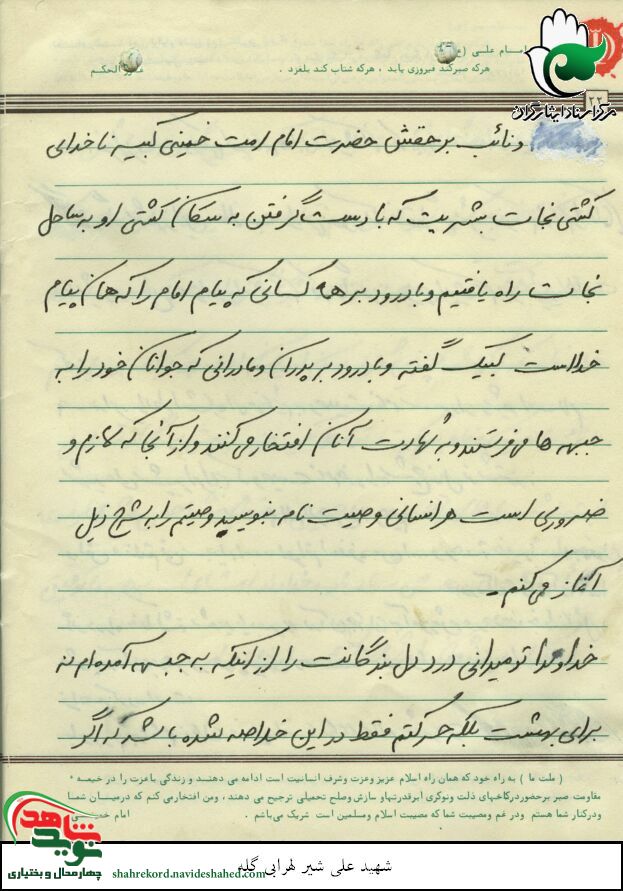 امام علی (ع)
هرکه صبرکند فیروزی یابد ، هرکه شتاب کند بلغزد .
غررالحکم
مرکز اسناد ایثارگران
۲۲
ونائب برحقش حضرت امام امت خمینی کبیر ناخدای
کشتی نجات بشریت که با دست گرفتن به سکان کشتی او به ساحل
نجات راه یافتیم وبا درود بر همه کسانی که پیام امام را که همان پیام
خداست لبیک گفته و با درود بر پدران ومادرانی که جوانان خود را به
جبهه ها می فرستند و به شهادت آنان افتخار می کنند و از آنجا که لازم و
ضروری است هر انسانی وصیت نامه بنویسد وصیتم را به شرح ذیل
آغاز می کنم .
خداوندا تو میدانی درد دل بندگانت را از اینکه به جبهه آمده ام نه
برای بهشت بلکه حرکتم فقط در این خلاصه شده باشد که اگر
( ملت ما ) به راه خود که همان راه اسلام عزیز وعزت وشرف انسانیت است ادامه می دهند و زندگی باعزت را در خیمه
مقاومت صبر برحضوردرکاخهای ذلت ونوکری ابرقدرتها و سازش وصلح تحمیلی ترجیح می دهند ، ومن افتخارمی کنم که درمیان شما
ودرکنار شما هستم ودر غم ومصیبت شما که مصیبت اسلام ومسلمین است شریک می باشم .
امام خمینی
نوید شاهد
چهارمحال و بختیاری
shahrekord.navideshahed.com
شهید علی شیر لهرابی گله